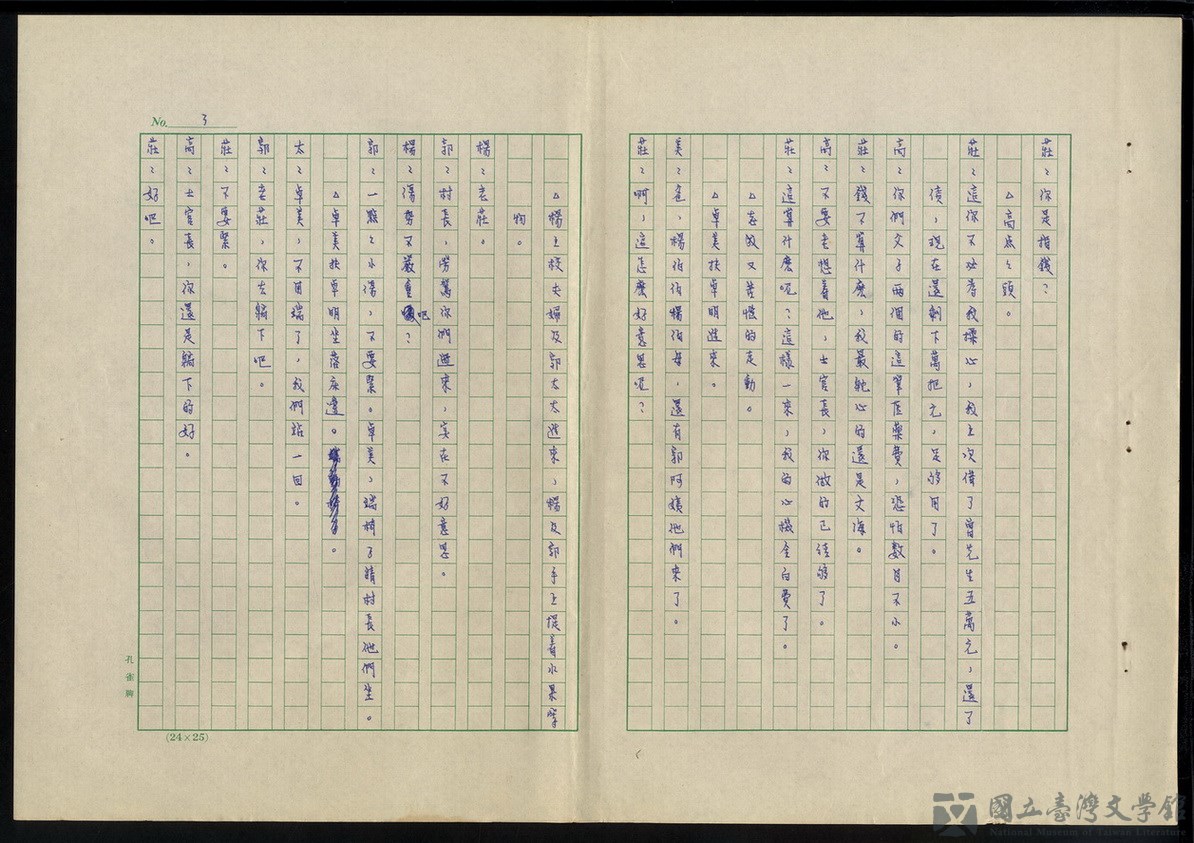 莊：你是指錢？
△高点々頭。
莊：這你不必為我操心，我上次借了曾先生五萬元，還了
債，現在還剩下萬把元，足够用了。
高：你們父子兩個的這筆医藥費，恐怕数目不小。
莊：錢了算什麽，我最耽心的還是文海。
高：不要去想着他，士官長，你做的已経够了。
莊：這算什麽呢？這樣一來，我的心機全白費了。
△志敏又苦惱的走動。
△卓美扶卓明進來。
美：爸，楊伯伯楊伯母，還有郭阿姨他們來了。
莊：啊，這怎麽好意思呢？
△楊上校夫婦及郭太太進來，楊及郭手上提着水果等
物。
楊：老莊。
郭：村長，勞駕你們進來，实在不好意思。
楊：傷勢不嚴重吧？
郭：一點々小傷，不要緊。卓美，端椅子請村長他們坐。
△卓美扶卓明坐落床邊。
太：卓美，不用端了，我們站一回。
郭：老莊，你去躺下吧。
莊：不要緊。
高：士官長，你還是躺下的好。
莊：好吧。
No. 3
孔雀牌
(24×25)
國立臺灣文學館
National Museum of Taiwan Literature